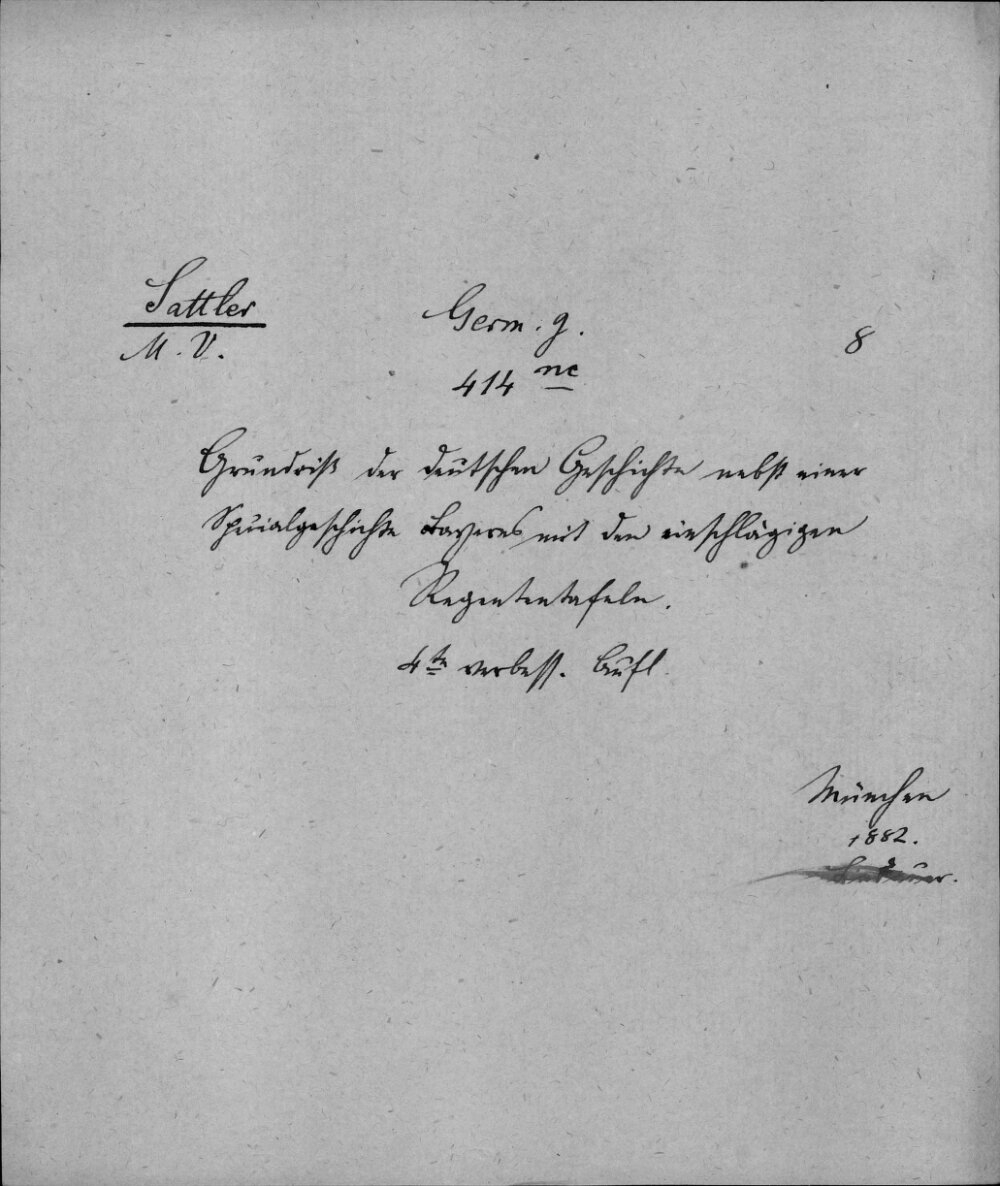 Sattler
M. V.
Germ. g.
414 nc
8
Grundriß der deutschen Geschichte nebst einer
Spezialgeschichte Bayerns mit den einschlägigen
Regententafeln.
4te verbess. Aufl.
München
1882.